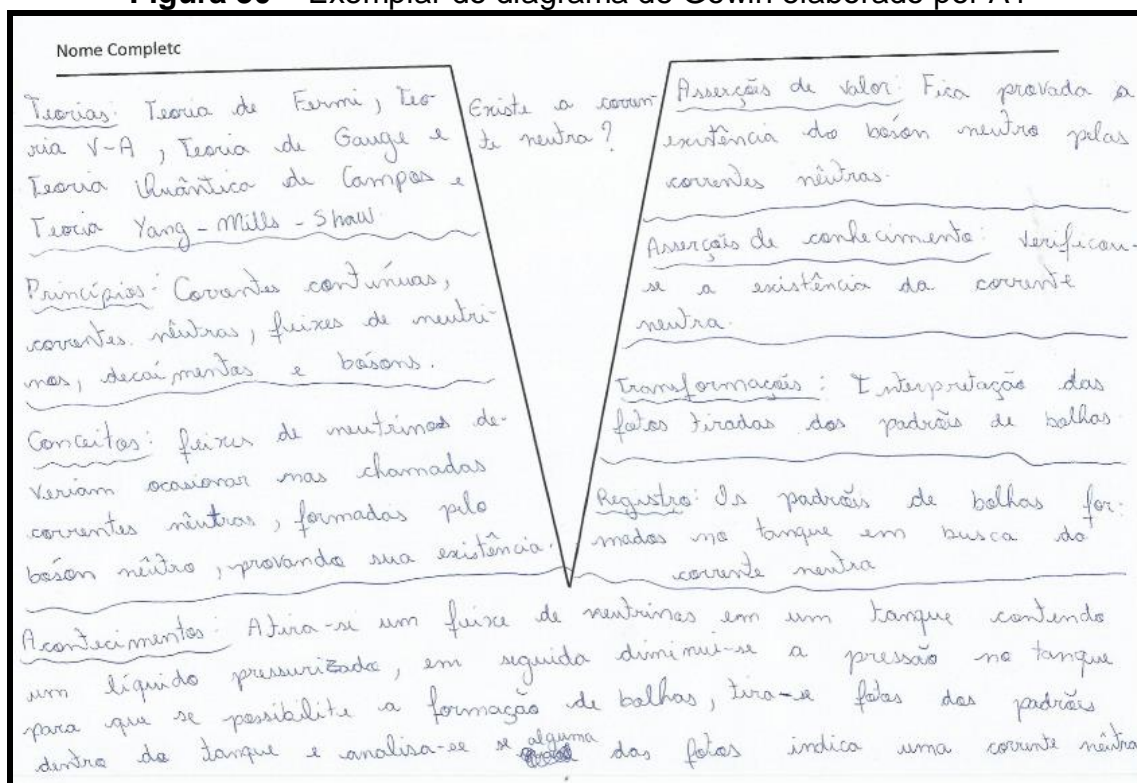 Nome Completo
Teorias: Teoria de Fermi, Teo-
ria V-A, Teoria de Gauge e
Teoria Quântica de Campos e
Teoria Yang-Mills-Shaw
Princípios: Correntes contínuas,
correntes nêutras, feixes de neutri-
nos, decaímentos e bósons.
Conceitos: feixes de neutrinos de-
veriam ocasionar nas chamadas
correntes nêutras, formadas pelo
bóson nêutro, provando sua existência.
Existe a corren
te neutra?
Asserções de valor: Fica provada a
existência do bóson neutro pelas
correntes nêutras.
Asserções de conhecimento: Verificou-
se a existência da corrente
neutra.
Transformações: Interpretação das
fotos tiradas dos padrões de bolhas
Registro: Os padrões de bolhas for-
mados no tanque em busca da
corrente neutra
Acontecimentos: Atira-si um feixe de neutrinos em um tanque contendo
um líquido pressurizado, em seguida diminui-se a pressão no tanque
para que se possibilite a formação de bolhas, tira-se fotos dos padrões
dentro do tanque e analisa-se se alguma das fotos indica uma corrente nêutra